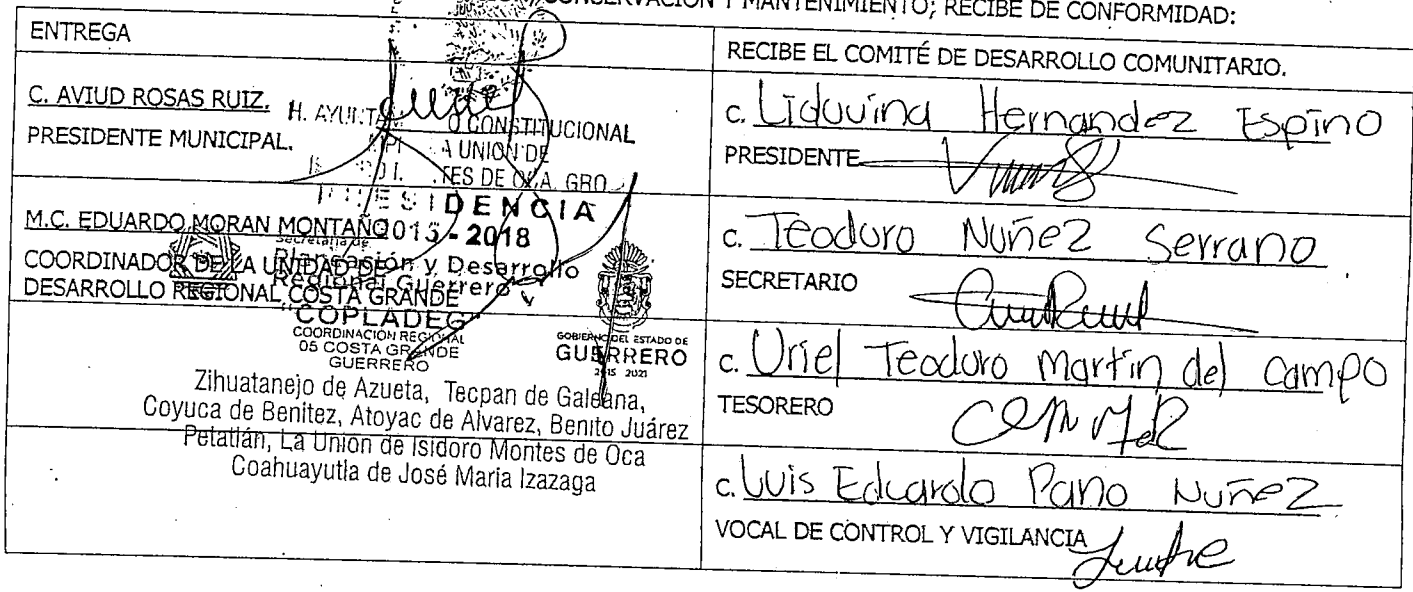 CONSERVACIÓN Y MANTENIMIENTO; RECIBE DE CONFORMIDAD:
ENTREGA
RECIBE EL COMITÉ DE DESARROLLO COMUNITARIO.
C. AVIUD ROSAS RUIZ.
PRESIDENTE MUNICIPAL.
H. AYUNTAM O CONSTITUCIONAL
LA UNION DE
TES DE OCA. GRO
PRESIDENCIA
2015 - 2018
M.C. EDUARDO MORAN MONTAÑO
COORDINADOR DE LA UNIDAD DE
DESARROLLO REGIONAL COSTA GRANDE
Secretaría de
Planeación y Desarrollo
Regional Guerrero
"COPLADEG"
COORDINACIÓN REGIONAL
05 COSTA GRANDE
GUERRERO
GOBIERNO DEL ESTADO DE
GUERRERO
2015 2021
Zihuatanejo de Azueta, Tecpan de Galeana,
Coyuca de Benitez, Atoyac de Alvarez, Benito Juárez
Petatlán, La Unión de Isidoro Montes de Oca
Coahuayutla de José Maria Izazaga
C. Liduvina Hernandez Espino
PRESIDENTE
C. Teoduro Nuñez Serrano
SECRETARIO
C. Uriel Teoduro Martin del Campo
TESORERO
C. Luis Eduardo Pano Nuñez
VOCAL DE CONTROL Y VIGILANCIA